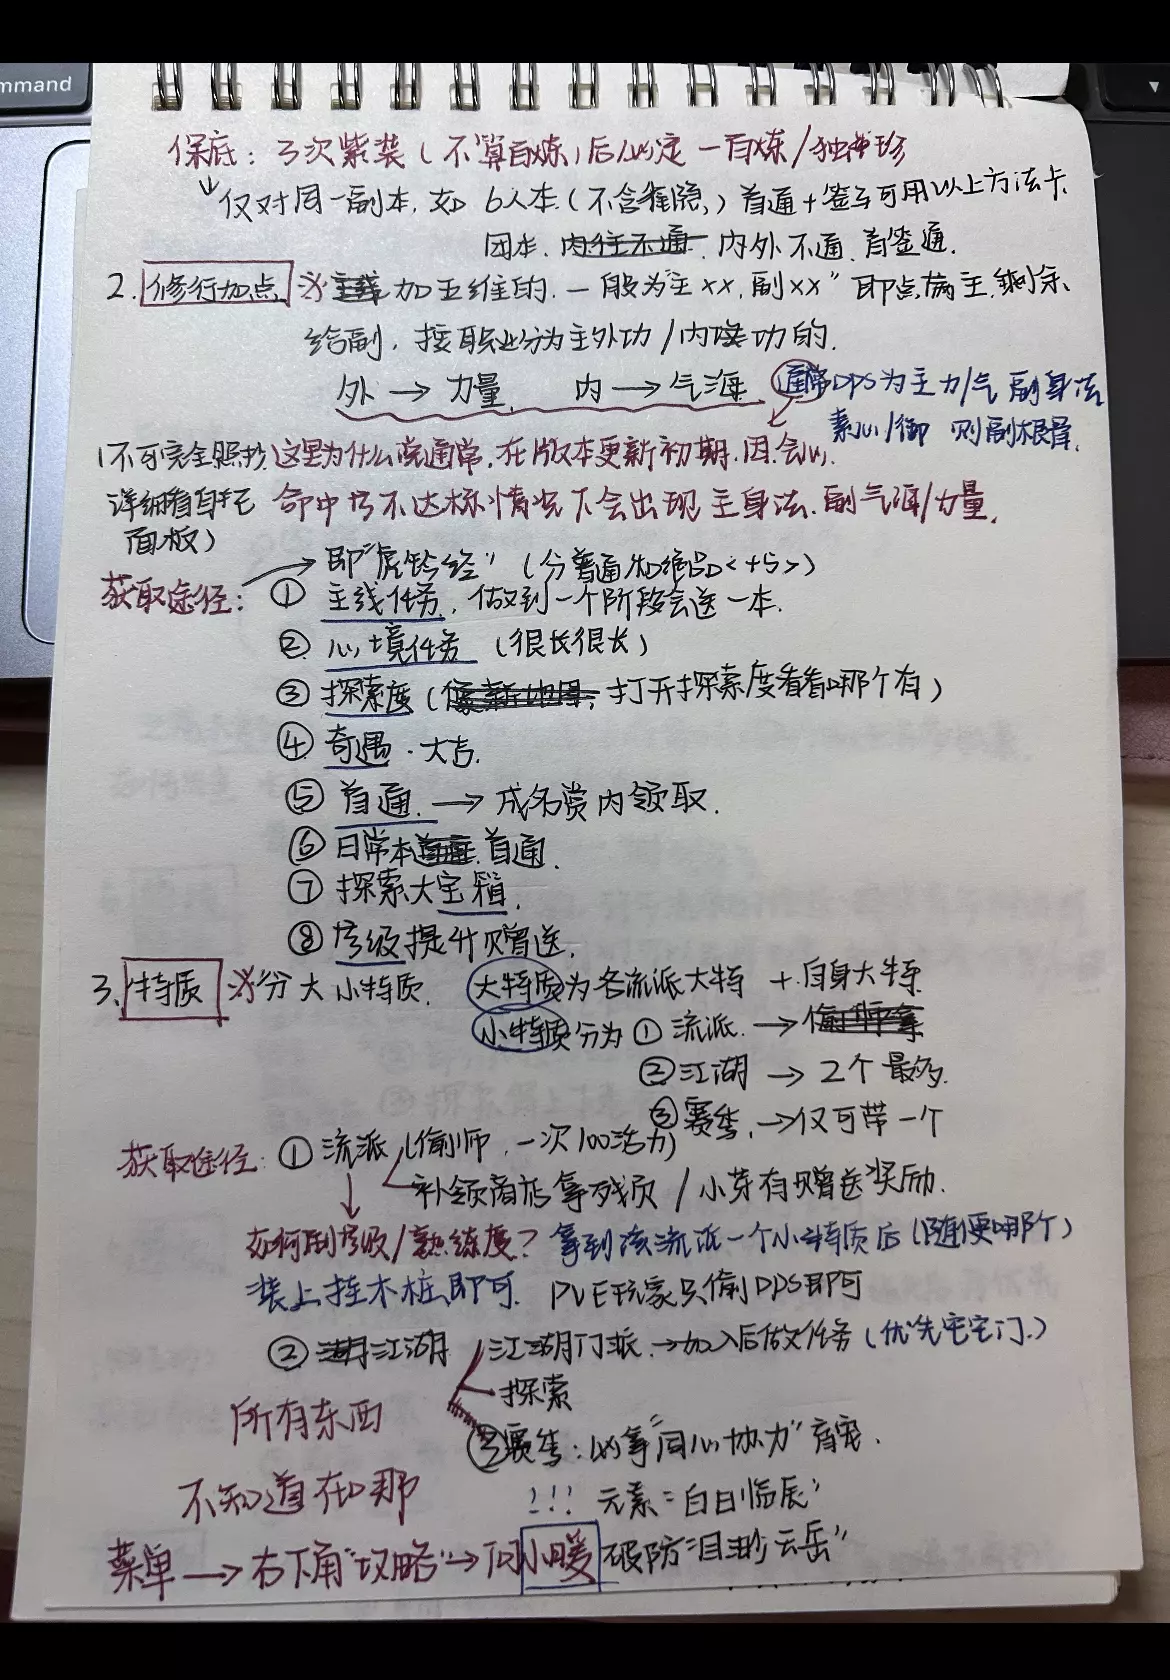 mmand
保底：3次紫装（不算百炼）后必定一百炼/独珍
仅对同一副本，如6人本（不含）首通+签到可用以上方法卡
团本，内往不通 内外不通，首签通。
2. 修行加点 ※主线 加五维的，一般为"主xx，副xx"即点满主，剩余
给副，按职业分为主外功/内功的。
外→力量， 内→气海 通常DPS为主力/气 副身法
素心/御 则副根骨。
（不可完全照抄 这里为什么说通常，在版本更新初期，因会心
详细看自己 命中等不达标情况下会出现主身法，副气海/力量。
面板）
即"虎钤经"（分普通和绝品<+5>）
获取途径：① 主线任务，做到一个阶段会送一本。
② 心境任务（很长很长）
③ 探索度（打开探索度看看哪个有）
④ 奇遇·大吉。
⑤ 首通，→成名赏内领取。
⑥ 日常本 首通。
⑦ 探索大宝箱。
⑧ 等级提升赠送。
3. 特质 ※分大小特质。 大特质为各流派大特 + 自身大特。
小特质分为① 流派，→偷师拿
② 江湖 → 2个最多。
③ 赛季，→仅可带一个
获取途径：① 流派（偷师，一次100活力）
补领商店拿残页/小芽有赠送奖励。
如何刷等级/熟练度？拿到该流派一个小特质后（随便哪个）
装上挂木桩即可。 PVE玩家只偷DPS即可
② 江湖 江湖门派，→加入后做任务（优先宅宅门。）
探索
所有东西
③ 赛季：必拿"同心协力"商宠。
不知道在哪
!!! 元素："白日临辰"
菜单→右下角"攻略"→问小暖 破防"目眇云岳"